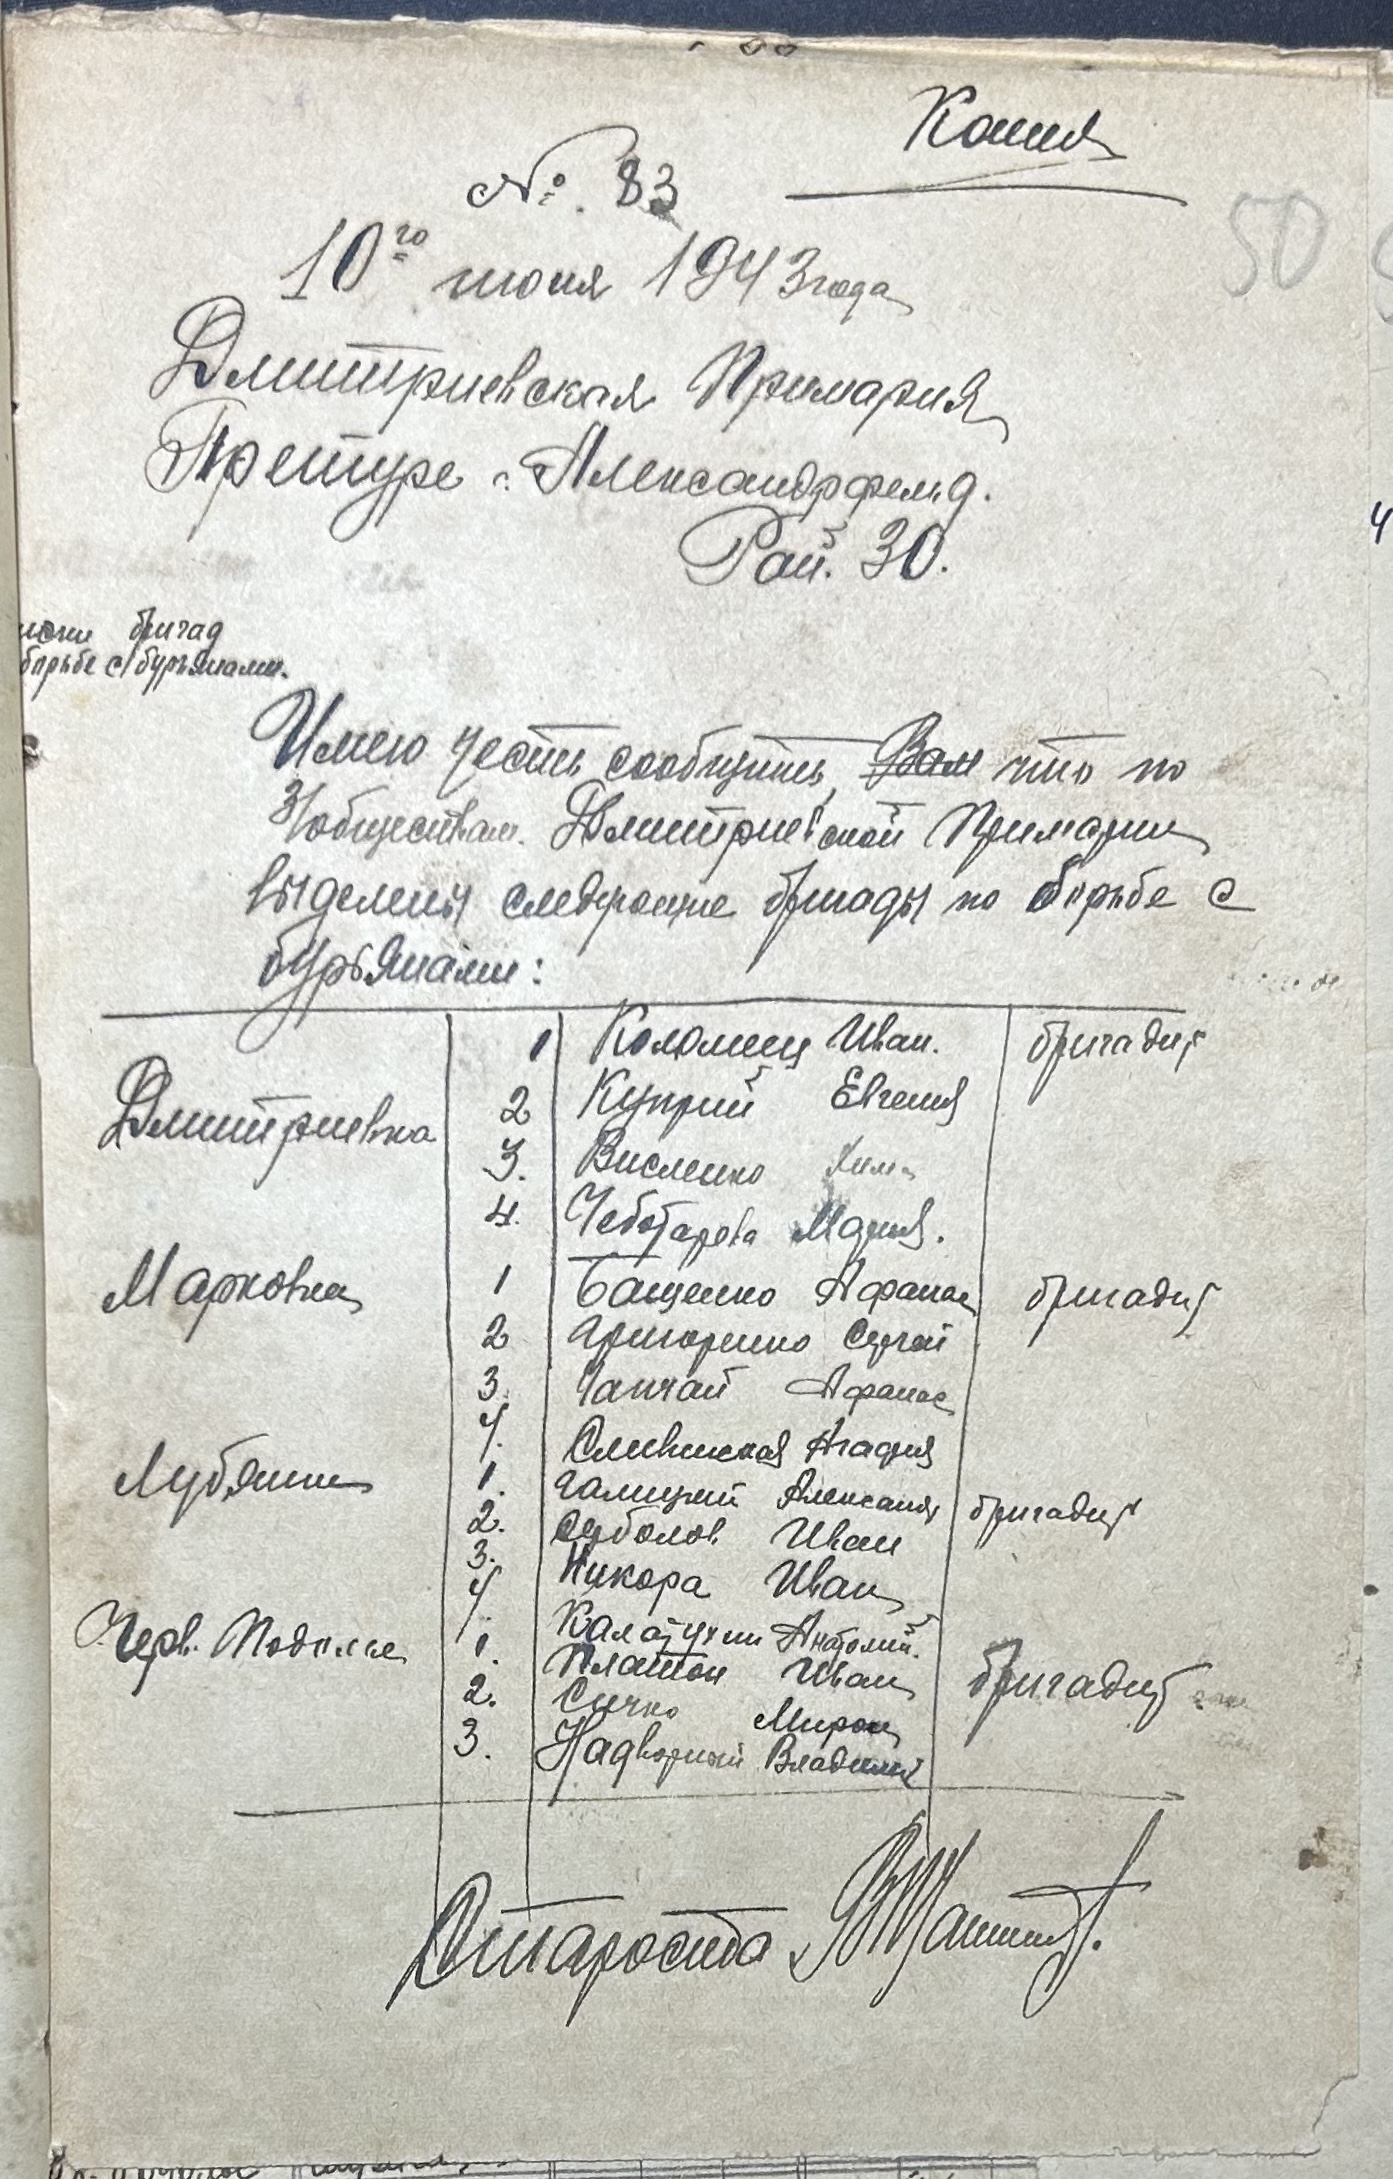 Копия
№. 83
50
10го июня 1943 года
Дмитриевская Примария
Претуре с. Александрфельд.
Рай. 30.
бригад
борьбе с бурьянами.
Имею честь сообщить, Вам что по
обществам. Дмитриевской Примарии
выделены следующие бригады по борьбе с
бурьянами:
1 Коломиец Иван. бригадир
Дмитриевка 2 Куприй Евгения
3. Висленко
4. Чеботарева Мария.
Марковка 1 Бащенко Афанас бригадир
2 Григоренко Сергей
3. Чапчай Афанас
4. Сливинская Агафия
Лубянки 1. Галицкий Александр бригадир
2. Суболов Иван
3. Никора Иван
4. Калатухин Анатолий.
Черв. Подолье 1. Платон Иван бригадир
2. Сичко Мирон
3. Надворный Владимир
Староста